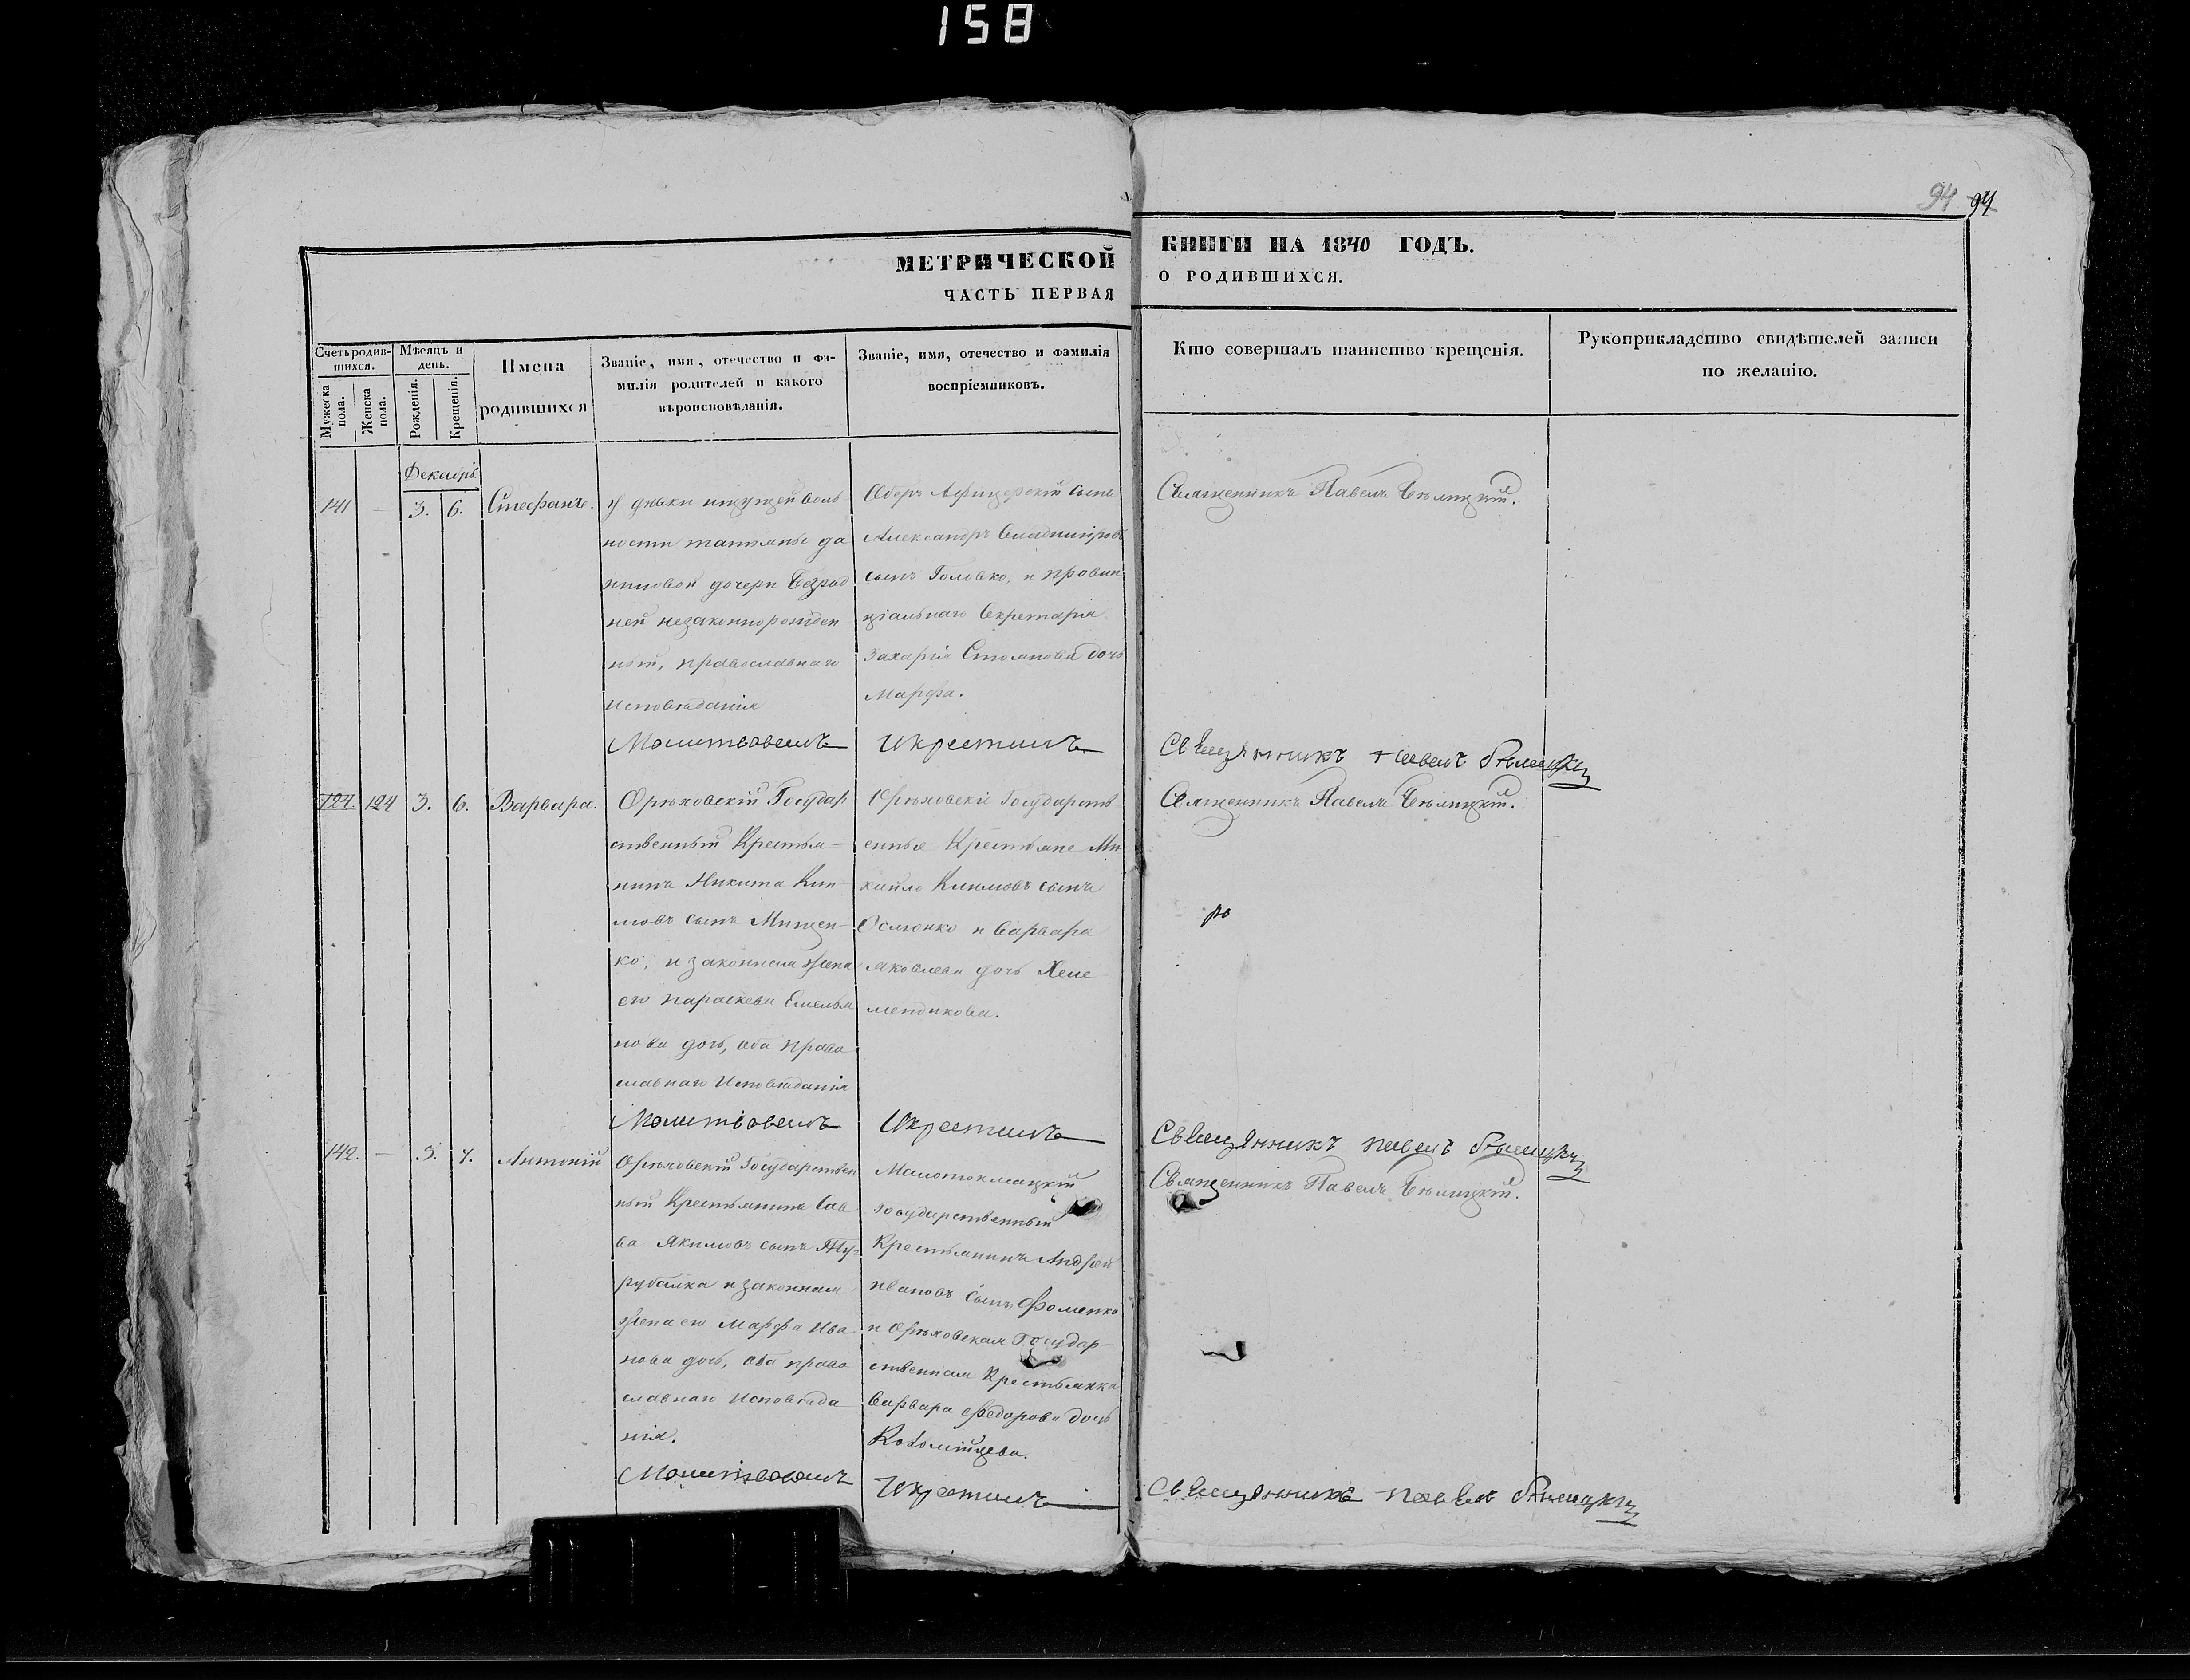 158
94 94
МЕТРИЧЕСКОЙ КНИГИ НА 1840 ГОДЪ.
ЧАСТЬ ПЕРВАЯ О РОДИВШИХСЯ.
Счетъ родив-
шихся.
Мужеска пола.
Женска пола.
Мѣсяцъ и день.
Рожденія.
Крещенія.
Имена
родившихся
Званіе, имя, отечество и фа-
милія родителей и какого
вѣроисповѣданія.
Званіе, имя, отечество и фамилія
воспріемниковъ.
Кто совершалъ таинство крещенія.
Рукоприкладство свидѣтелей записи
по желанію.
Декабрь
141 - 3. 6. Стефанъ.
У дѣвки ищущей воль
ности татьяны да
ниловой дочери Безрод
ней незаконнорожден
ный, православнаго
исповѣданія
Оберъ Афицерскій сынъ
Александръ Владиміровъ
сынъ Головко, и провин
ціальнаго Секретаря
Захарія Стоянова дочь
Марфа.
Священникъ Павелъ Бѣлицкій.
Молитвовалъ Икрестилъ
Священникъ павелъ Бѣлицкій
124. 124 3. 6. Варвара.
Орѣховскій Государ
ственный Крестья-
нинъ Никита Кли-
мовъ сынъ Мищен-
ко, и законная жена
его параскева Емелья
нова дочь, оба право
славнаго Исповѣданія
Орѣховскіе Государств
енные Крестьяне Ми
хайло Климовъ сынъ
Осменко и варвара
яковлева дочь Хеле
мендикова.
Священникъ Павелъ Бѣлицкій.
Молитвовалъ Икрестилъ
Священникъ павелъ Бѣлицкій
142. - 3. 7. Антоній
Орѣховскій Государствен
ный Крестьянинъ Сав
ва Якимовъ сынъ Ту=
рубалка и законная
жена его Марфа Ива
нова дочь, оба право
славнаго Исповѣда
нія.
Малотокмацкій
Государственный
Крестьянинъ Андрей
ивановъ сынъ Фоменко
и Орѣховская Государ-
ственная Крестьянка
варвара Федорова дочь
Коломійцева.
Священникъ Павелъ Бѣлицкій.
Молитвовалъ Икрестилъ
Священникъ павелъ Бѣлицкій